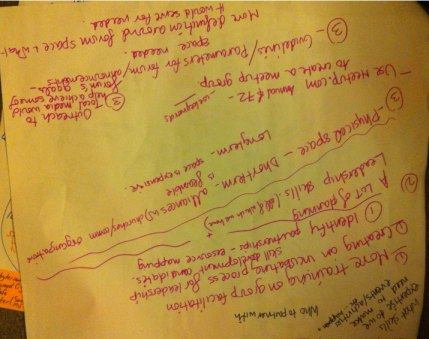 What skills
expertise do we
need to make
events/agenda
happen?
Who to partner with
① More training on group facilitation
② Creating an incubating process for leadership
skill development candidates.
① Identify partnerships - resource mapping
② A LOT of planning
Leadership skills
③ Physical space - Short-term - alliances w/ church/comm organizations
is feasible
Longterm - space is expensive.
- Use Meetup.com Annual $72 -
to create a meetup group
③ Outreach to
local media would
help achieve some of
forum's goals -
③ - Guidelines/Parameters for forum/announcements
space needed.
More definition around forum space & what
it would serve for needed.